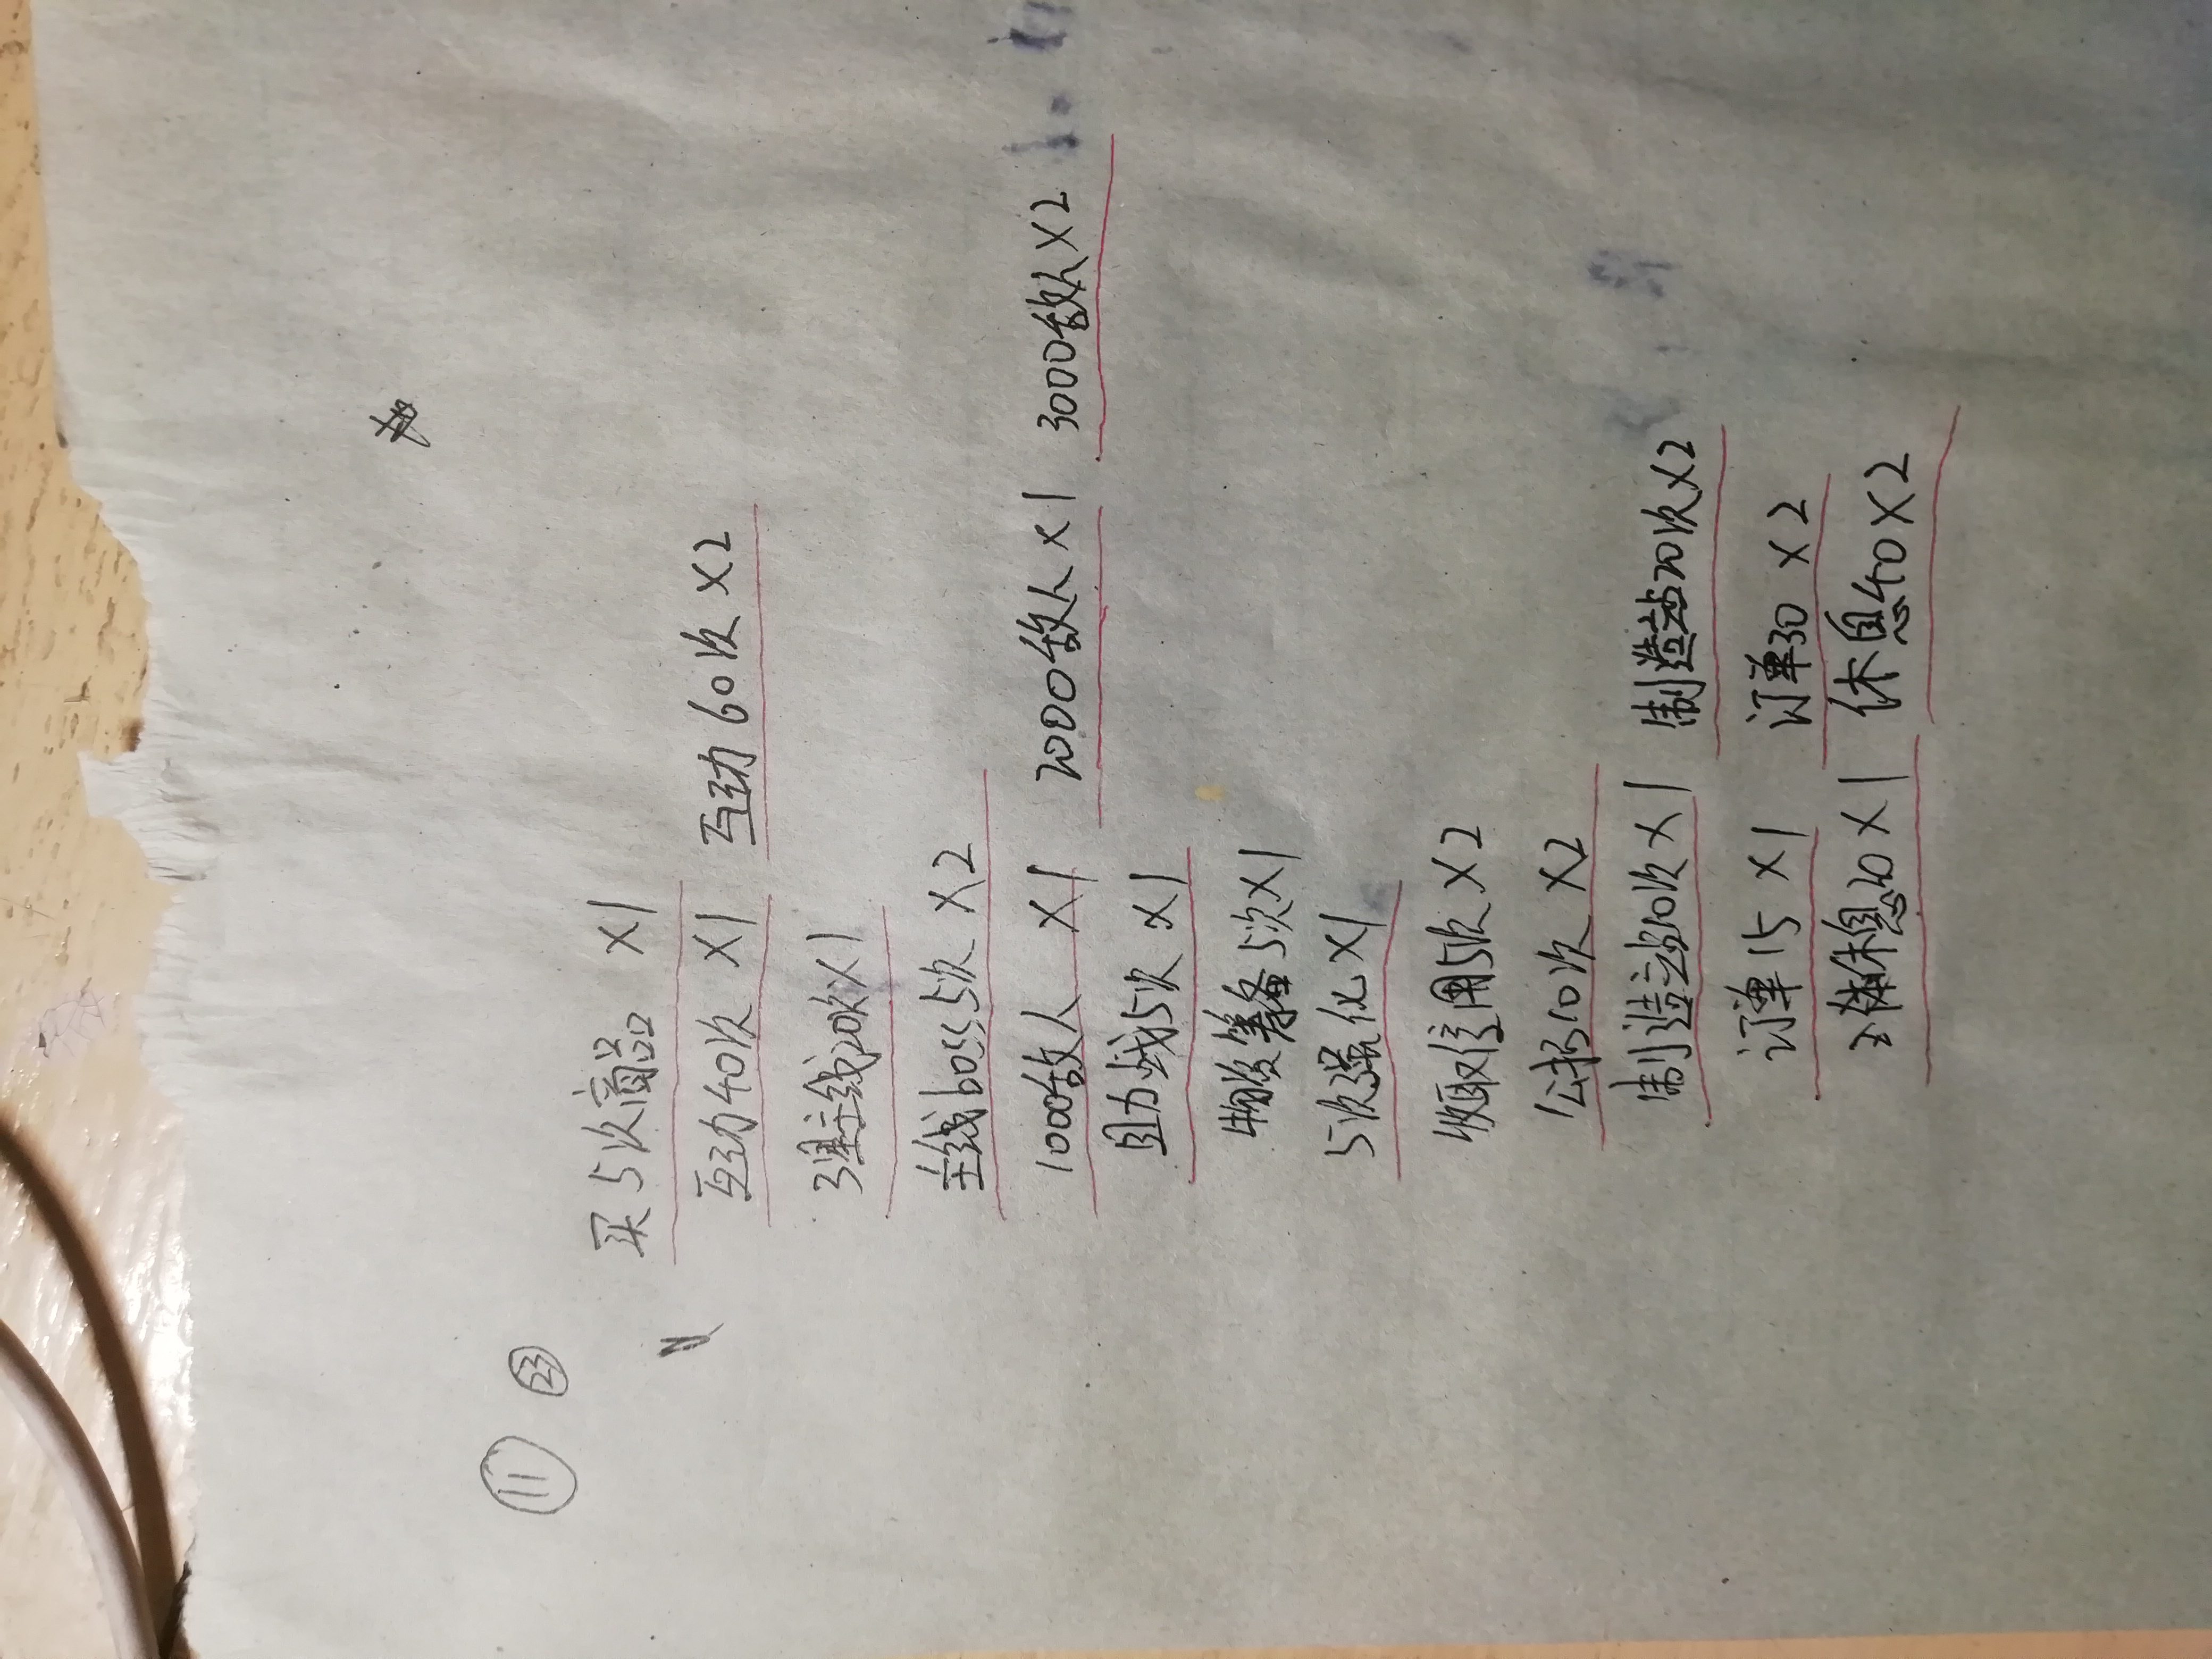 11 23
买5次商品 X1
互动40次 X1 互动60次 X2
3星主线20次X1
主线boss5次 X2
1000敌人 X1 2000敌人 X1 3000敌人X2
助战5次 X1
物资筹备5次X1
5次强化X1
收取信用5次 X2
公招10次 X2
制造站10次X1 制造站20次X2
订单15 X1 订单30 X2
休息20 X1 休息40X2